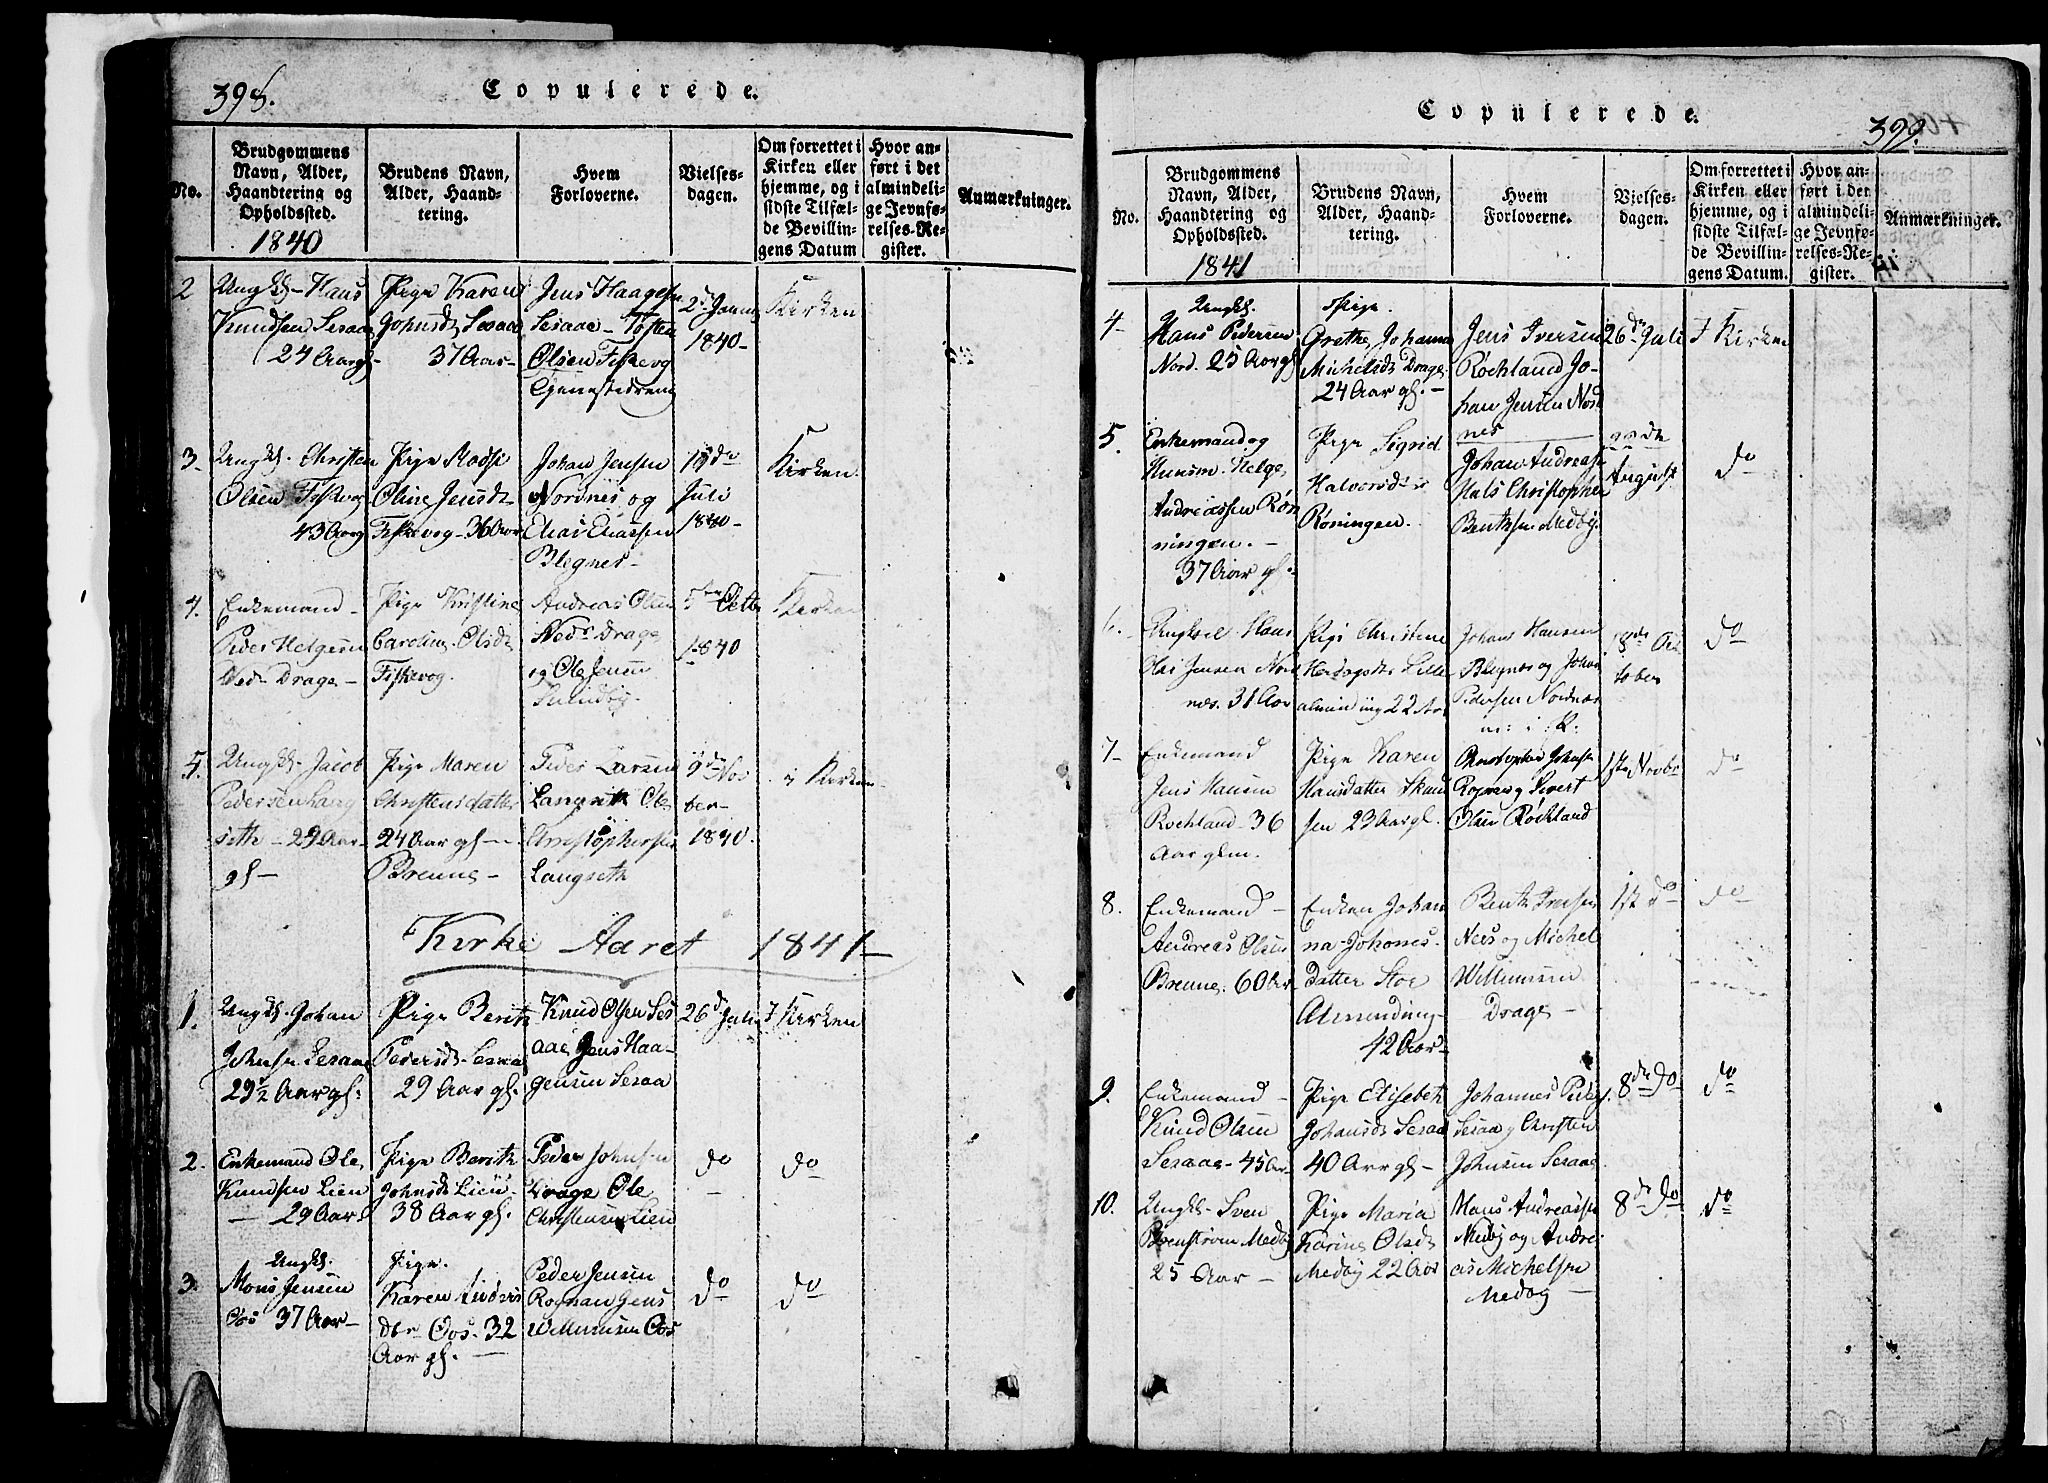 398.
Copulerede.
No.
Brudgommens
Navn, Alder,
Haandtering og
Opholdssted.
1840
Brudens Navn,
Alder, Haand-
tering.
Hvem
Forloverne.
Vielses-
dagen.
Om forrettet i
Kirken eller
hjemme, og i
sidste Tilfæl-
de Bevillin-
gens Datum
Hvor an-
ført i det
almindeli-
ge Jevnfø-
relses-Re-
gister.
Anmærkninger.
2
Ungk. Hans
Knudsen Sesaae
24 Aar
Pige Karen
Johnsd. Sesaae
37 Aar
Jens Haagensen
Sesaae
Olsen Fiskevog
1840
Kirken
3.
Ungk. Christen
Olsen Fiskevog
43 Aar
Pige
Oline Jensd.
Fiskevog 36 Aar
Johan Jensen
Nordnes og
Elias Eliassen
Blegnes
Juli
1840
Kirken
4.
Enkemand
Peder Helgesen
Nedr Drage
Pige Kristine
Caroline Olsd.
Fiskevog.
Andreas Olsen
Nedr Drage
og Ole Jensen
5te Octb
1840
Kirken
5.
Ungk. Jacob
Pedersen Lang
seth 22 Aar
gl
Pige Maren
Christensdatter
24 Aar gl
Brenne
Peder Larsen
Langseth Ole
Christophersen
Langseth
9de Nov
ber
1840.
i Kirken
Kirke Aaret 1841
1.
Ungk. Johan
Johnsen Sesaae
29½ Aar gl.
Pige Berith
Pedersd. Sesaa
29 Aar gl.
Knud Olsen Ses
aae Jens Haa-
gensen Sesaa
26d Juli
I Kirken
2.
Enkemand Ole
Knudsen Lien
29 Aar
Pige Berith
Johnsd. Lien
38 Aar gl.
Peder Johnsen
Drage Ole
Christensen Lien
do
do
3.
Ungk.
Mons Jensen
Oos 37 Aar
Pige.
Karen
dtr Oos. 32
Aar gl.
Peder Jensen
Rognan Jens
Willumsen Oos
do
do
399.
Copulerede.
No.
Brudgommens
Navn, Alder,
Haandtering og
Opholdssted.
1841
Brudens Navn,
Alder, Haand-
tering.
Hvem
Forloverne.
Vielses-
dagen.
Om forrettet i
Kirken eller
hjemme, og i
sidste Tilfæl-
de Bevillin-
gens Datum.
Hvor an-
ført i det
almindeli-
ge Jevnfø-
relses-Re-
gister.
Anmærkninger.
4
Ungk.
Hans Pedersen
Nord. 25 Aar gl
Pige.
Grethe Johanna
Michelsd. Drage
24 Aar gl.
Jens Iversen
Rochland Jo-
han Jensen Nord
nes
26de Juli
I Kirken
5.
Enkemand og
Huusm. Helge
Andreassen Røn
ningen.
37 Aar gl.
Pige Sigrid
Halvorsd.
Røningen.
Johan Andreas
Hals Christopher
Bentsen Medby.
August
do
6.
Ungkarl Hans
Olai Jensen Nord
næs. 31 Aar
Pige Christine
Lille
alminding 22 Aar
Johan Hansen
Blegnæs og Johan
Pedersen Nordnæs
18de Oc
tober
do
7
Enkemand
Jens Hansen
Rochland 36
Aar glm.
Pige Karen
Hansdatter
23 Aar gl.
Christopher Johnsen
Rognan og Sivert
Olsen Rochland
1ste Novbr
do
8.
Enkemand
Andreas Olsen
Brenne. 60 Aar
Enken Johan
na Johanes-
datter Stor
Almending
42 Aar
Benth Iversen
Næs og Michel
Willumsen
Drage
1ste do
do
9.
Enkemand
Knud Olsen
Sesaae 45 Aar
Pige Elisebeth
Johansd. Sesaa
40 Aar gl
Johannes
Sesaa og Christen
Johnsen Sesaae
8de do
do
10.
Ungk. Sven
Medby
25 Aar
Pige Maria
Karine Olsd.
Medby 22 Aar
Hans Andreassen
Medby og Andre
as Michelsen
Medby
8de do
do